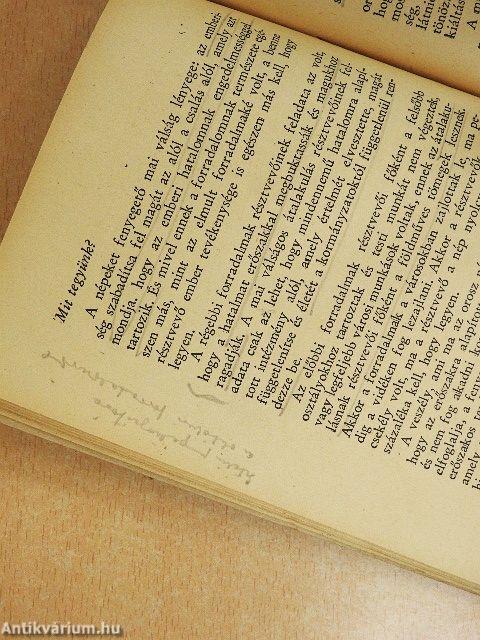 Mit tegyünk?
A népeket fenyegető mai válság lényege: az ember-
ség szabadítsa fel magát az alól a csalás alól, amely azt
mondja, hogy az emberi hatalomnak engedelmességgel
tartozik. És mivel ennek a forradalomnak természete egé-
szen más, mint az elmult forradalmaké volt, a benne
résztvevő ember tevékenysége is egészen más kell, hogy
legyen.
A régebbi forradalmak résztvevőinek feladata az volt,
hogy a hatalmat erőszakkal megbuktassák és magukhoz
ragadják. A mai válságos átalakulás résztvevőinek fel-
adata csak az lehet, hogy mindennemű hatalomra alapí-
tott intézmény alól, amely értelmét elvesztette, magát
függetlenítse és életét a kormányzatoktól függetlenül ren-
dezze be.
Az előbbi forradalmak résztvevői, főként a felsőbb
osztályokhoz tartoztak és testi munkát nem végeztek
vagy legfeljebb városi munkások voltak, ennek az átalaku-
lásnak résztvevői, főként a földműves tömegek lesznek.
Akkor a forradalmak a városokban zajlottak le, ma pe-
dig a vidéken fog lezajlani. Akkor a résztvevők
csekély volt, ma a résztvevő a nép nyolcv
százaléka kell hogy legyen.
A veszély, ami ma az orosz n
hogy az erőszakra alapítot
és nem fog akadni
elfoglalja, a fenn
erőszakos
amely
Antikvárium.hu